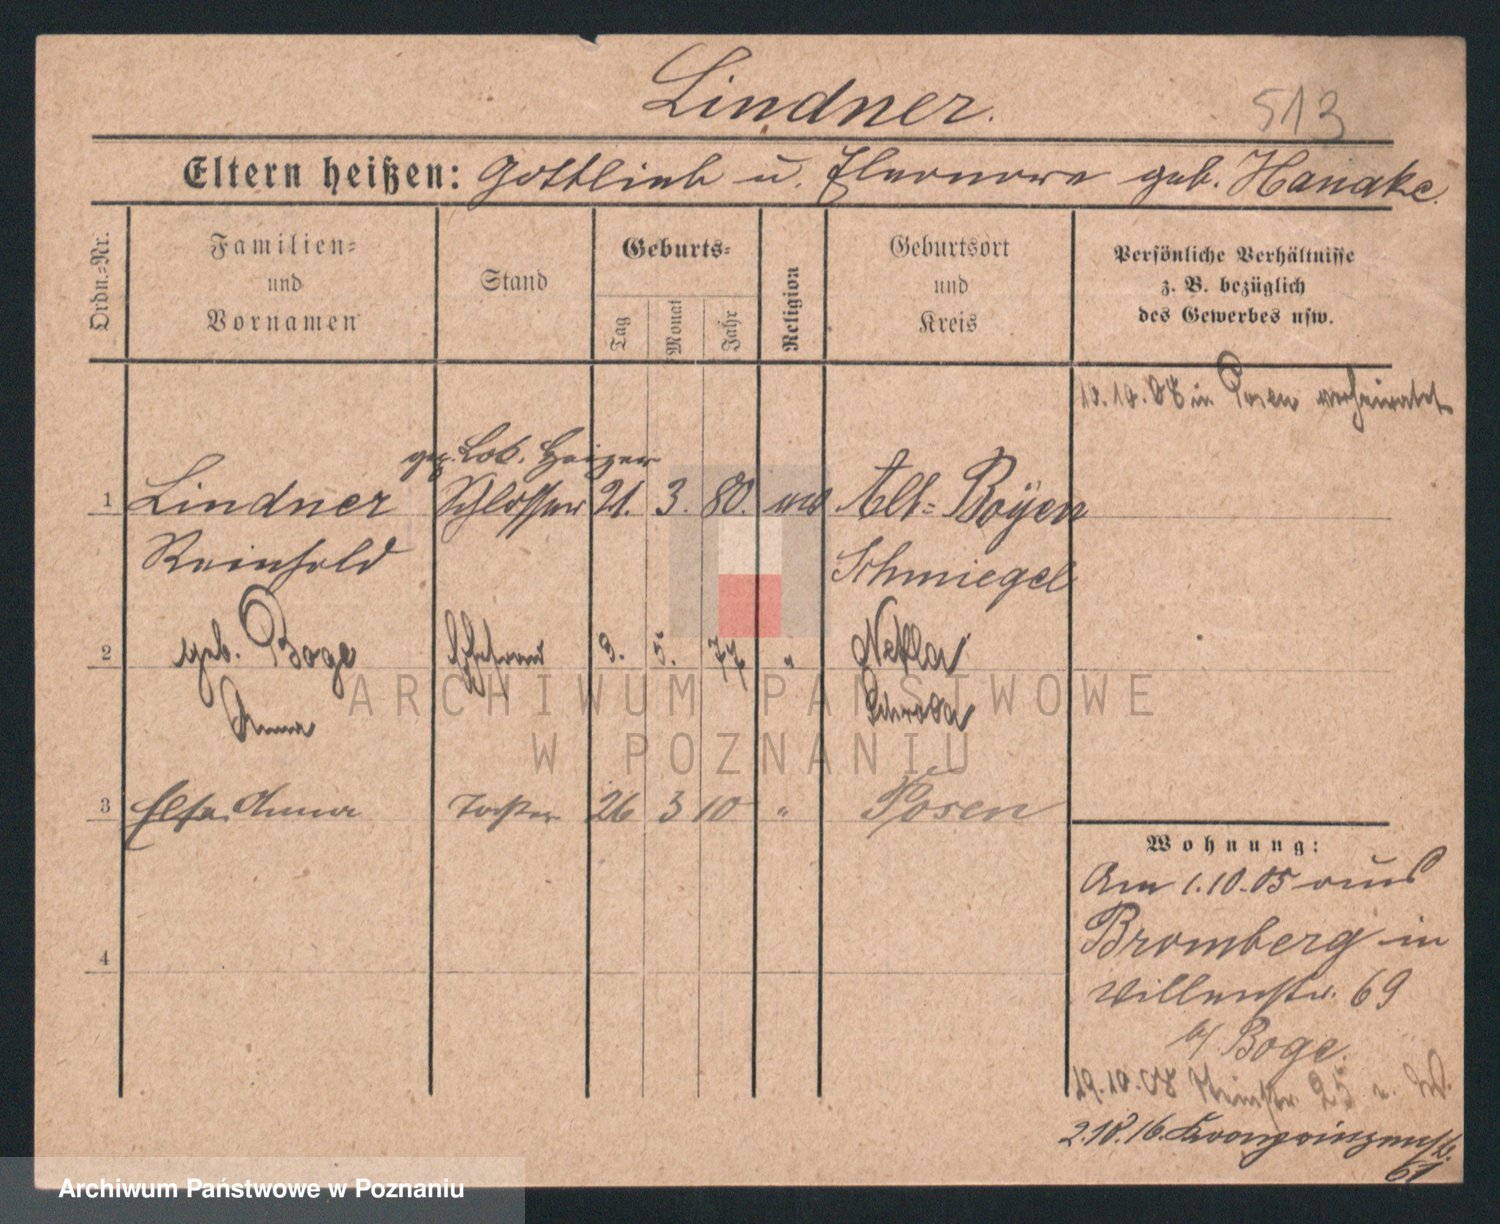 Lindner.
513
Eltern heißen: Gottlieb u. Eleonore geb. Hanake.
Ordn.=Nr.
Familien=
und
Vornamen
Stand
Geburts=
Tag
Monat
Jahr
Religion
Geburtsort
und
Kreis
Persönliche Verhältnisse
z. B. bezüglich
des Gewerbes usw.
10.10.08 in Posen verheiratet
gep. Lok. Heizer
1 Lindner Schlosser 21. 3. 80. Alt=Boÿen
Reinhold Schmiegel
2 geb. Boge Ehefrau 9. 5. 77 " Nekla
Anna Schroda
3 Else Anna Tochter 26 3 10 " Posen
4
Wohnung:
Am 1.10.05 aus
Bromberg in
69
b/ Boge.
19.10.08 25
2.10.16. Kronprinzenstr.
61
ARCHIWUM PAŃSTWOWE
W POZNANIU
Archiwum Państwowe w Poznaniu